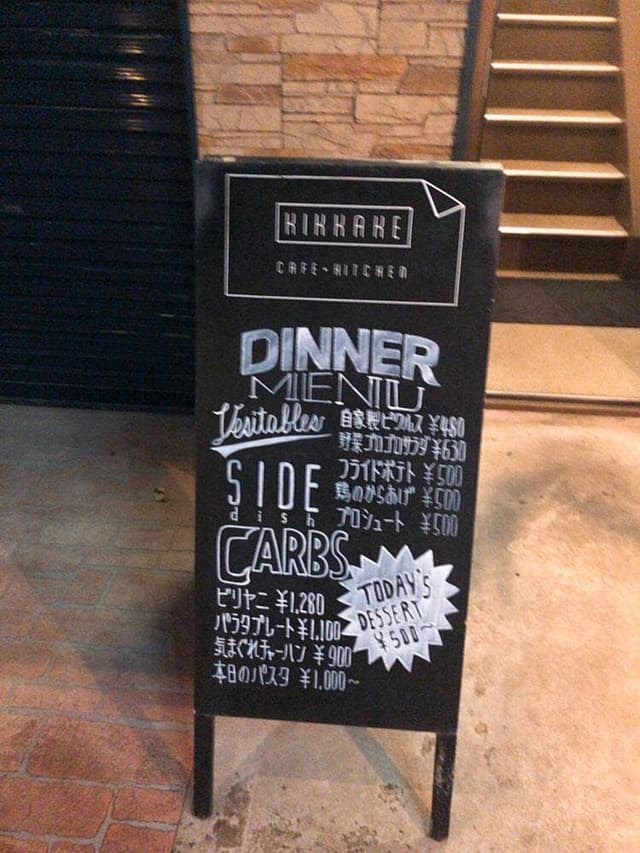 KIKKAKE
CAFE-KITCHEN
DINNER
MENU
Vesitables
自家製ピクルス ¥480
野菜ゴロゴロサラダ ¥630
SIDE
dish
フライドポテト ¥500
鶏のからあげ ¥500
プロシュート ¥500
CARBS
ビリヤニ ¥1,280
パラタプレート ¥1,100
気まぐれチャーハン ¥900
本日のパスタ ¥1,000~
TODAY'S
DESSERT
¥500~